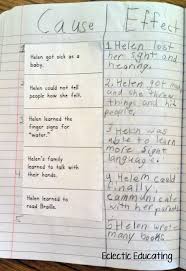 Cause Effect
Helen got sick as a
baby.
1. Helen lost
her sight and
hearing.
Helen could not tell
people how she felt.
2. Helen got mad
and she threw
things and hit
people.
Helen learned the
finger signs for
"water."
3. Helen was
able to
learn more
sign
languages.
Helen's family
learned to talk with
their hands.
4. Helen could
finally
communicate
with her parents
Helen learned to
read Braille.
5. Helen
wrote
many books
Eclectic Educating